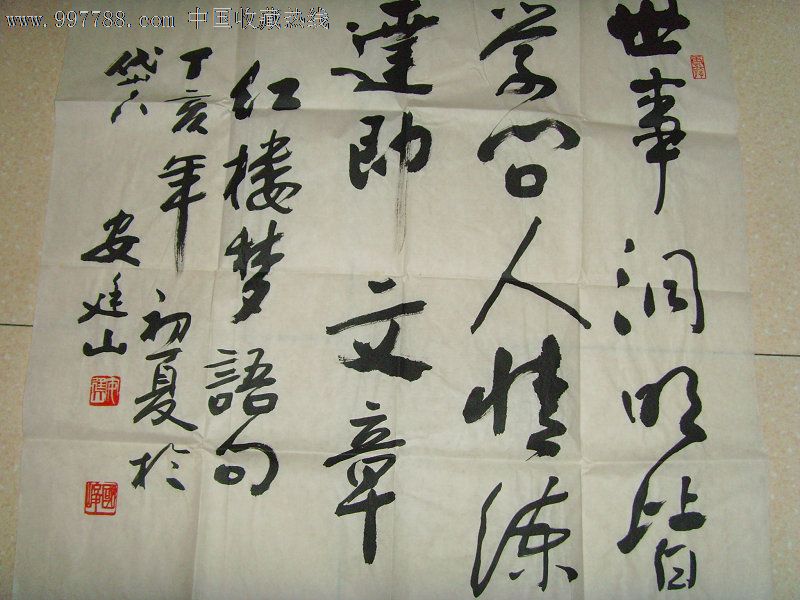 www.997788.com 中国收藏热线
世事洞明皆
学问人情练
達即文章
红楼梦語句
丁亥年初夏於
岱下
安廷山